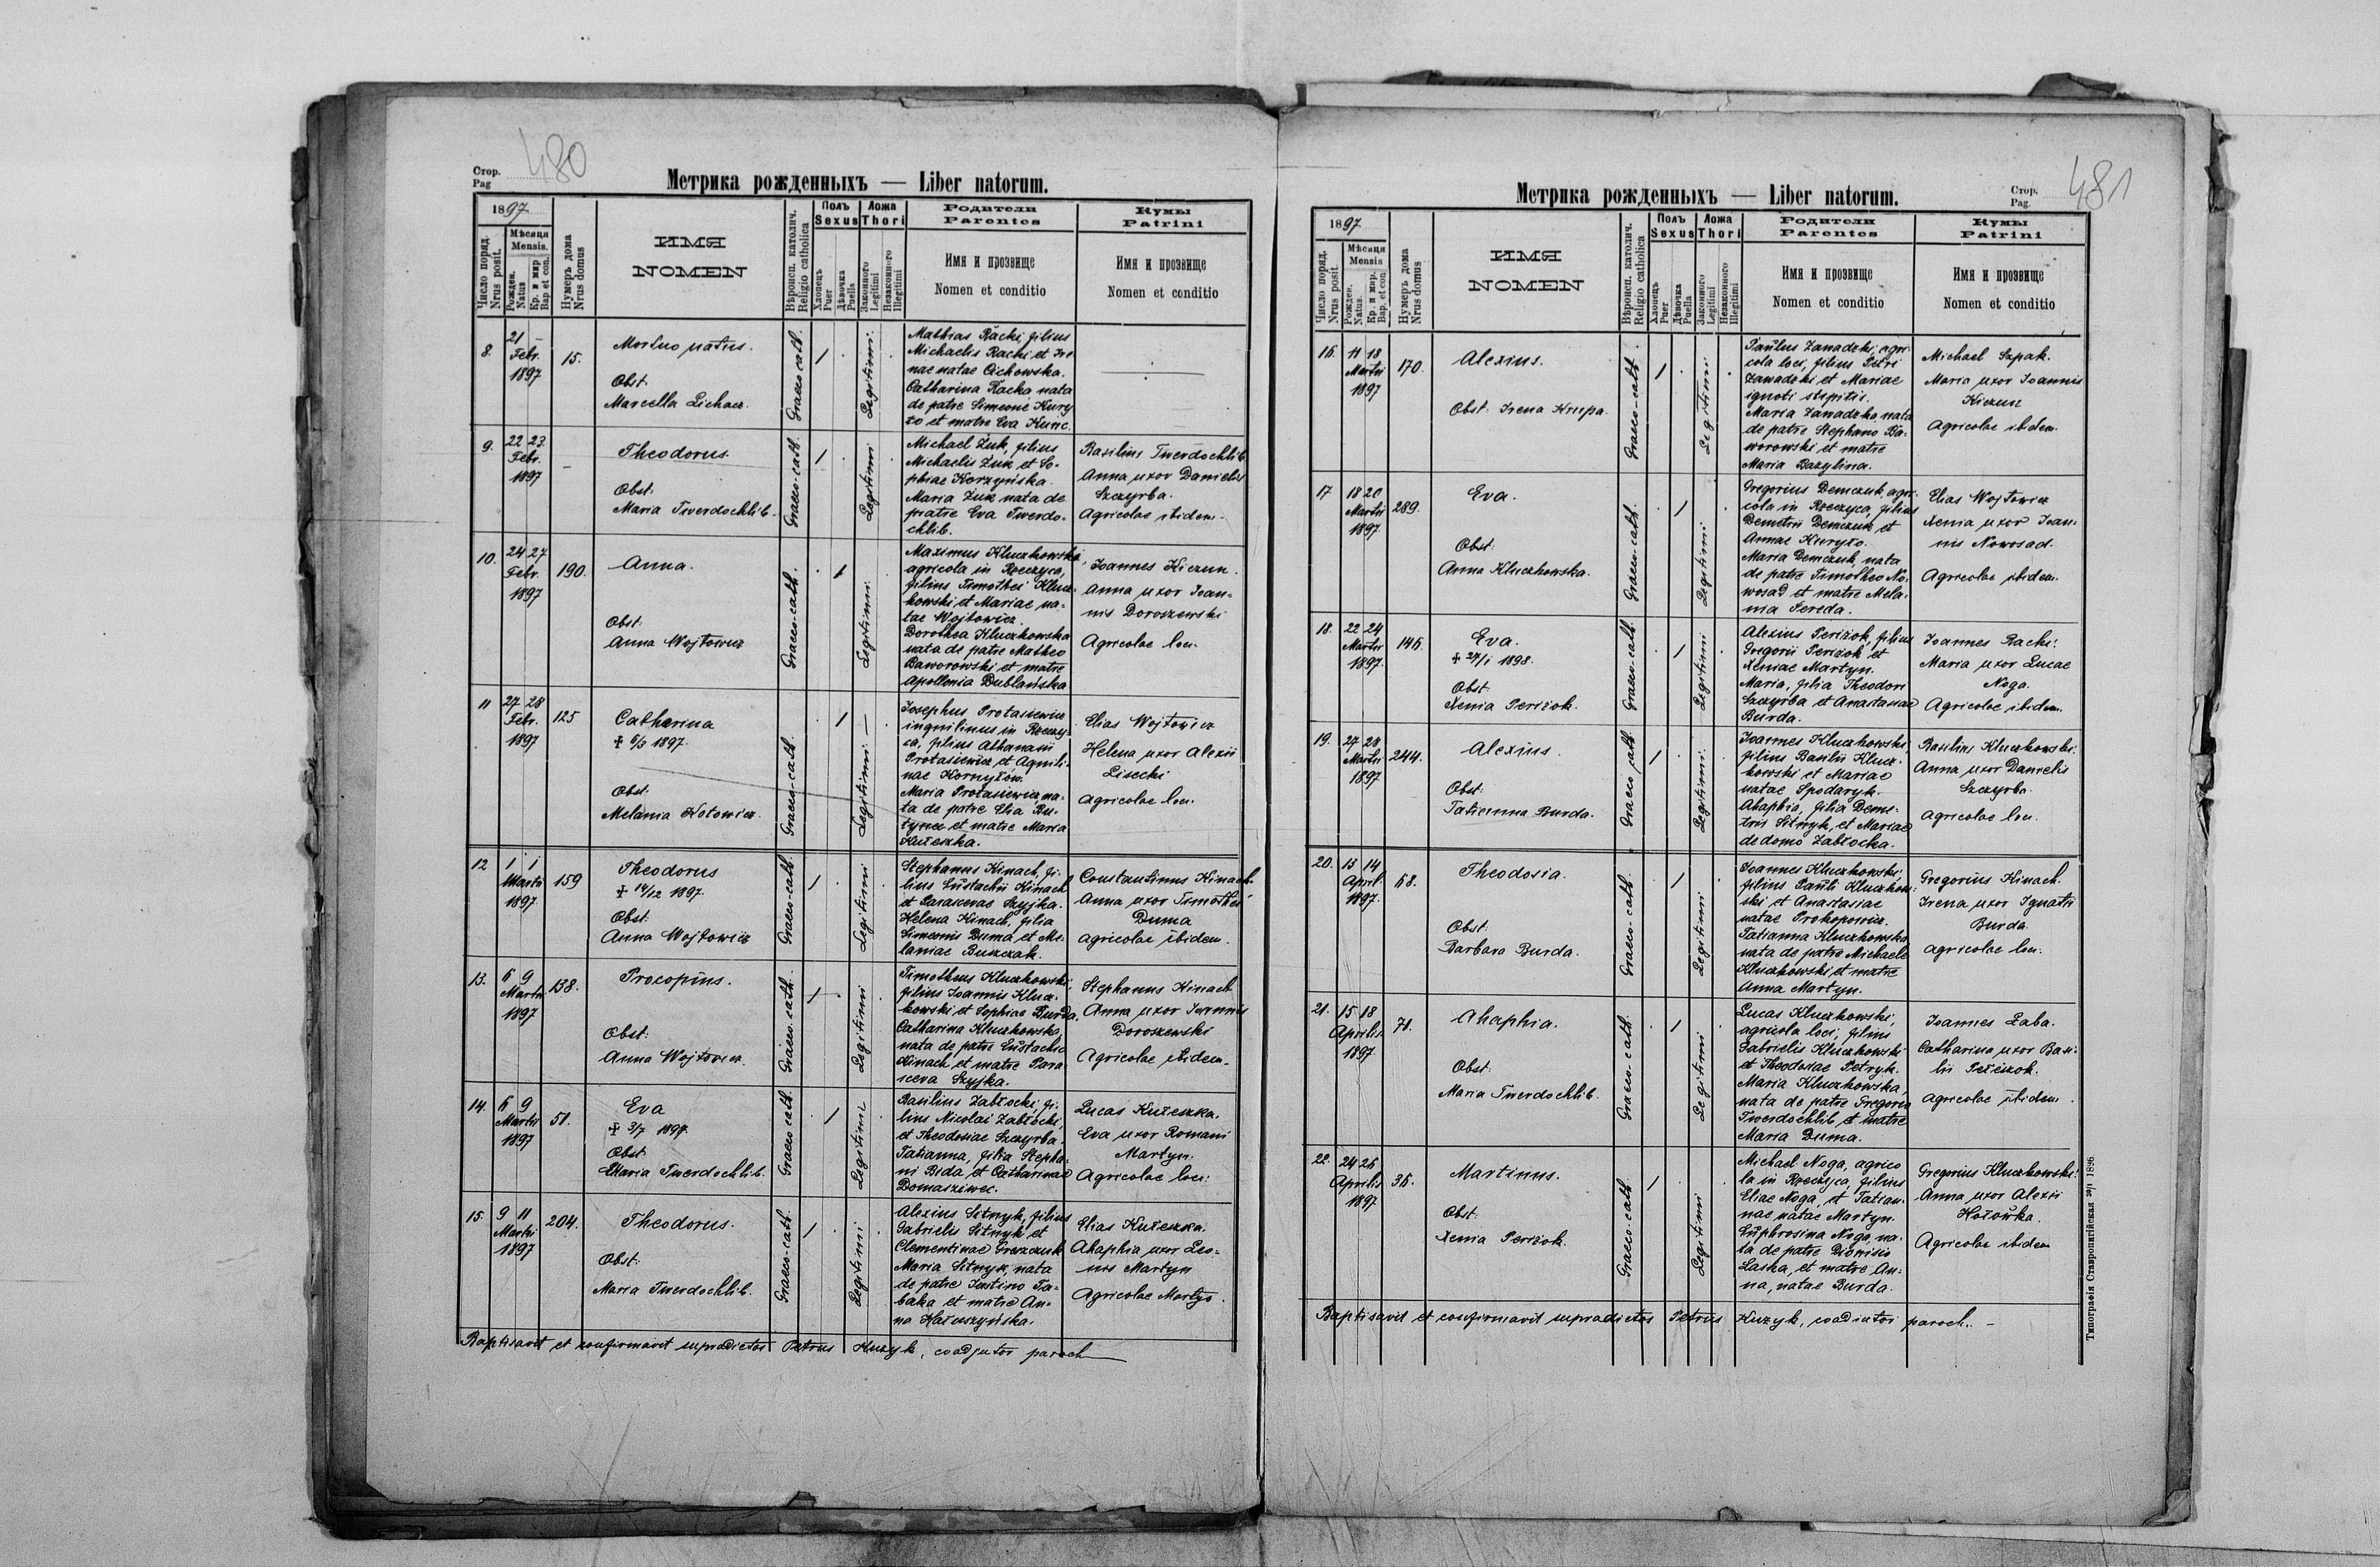 Стор.
Pag
480
Метрика рожденныхъ — Liber natorum.
1897
Число поряд.
Nrus posit.
Мѣсяця
Mensis.
Рожден.
Natus
Кр. и мир
Bap et con.
Нумеръ дома
Nrus domus
ИМЯ
NOMEN
Вѣроисп. католич.
Religio catholica
Полъ
Sexus
Хлопець
Puer
Дѣвочка
Puella
Ложа
Thori
Законного
Legitimi
Незаконного
Illegitimi
Родители
Parentes
Имя и прозвище
Nomen et conditio
Кумы
Patrini
Имя и прозвище
Nomen et conditio
8.
21 –
Febr.
1897
15.
Mortuo natus.
Obst.
Marcella Lichacz.
Graeco cath.
1
Legitimi.
Mathias Racki, filius
Michaelis Racki et Ire
nae natae Cichowska.
Catharina Racka nata
de patre Simeone Kury
ło et matre Eva Kunc.
9.
22 23.
Febr.
1897
–
Theodorus.
Obst.
Maria Twerdochlib.
Graeco-cath.
1
Legitimi
Michael Żuk, filius
Michaelis Żuk et So-
phiae Korzyńska.
Maria Żuk nata de
matre Eva Twerdo-
chlib.
Basilius Twerdochlib
Anna uxor Danielis
Szczyrba.
Agricolae ibidem.
10.
24 27
Febr.
1897
190.
Anna.
Obst.
Anna Wojtowicz
Graeco-cath.
1
Legitimi.
Maximus Kluczkowski,
agricola in Rzeczyca,
filius Timothei Klucz-
kowski et Mariae na-
tae Wojtowicz.
Dorothea Kluczkowska
nata de patre Matheo
Baworowski et matre
Apollonia Dublańska
Joannes Kiczun.
Anna uxor Joan-
nis Doroszewski
Agricolae loci.
11
27 28
Febr.
1897
125
Catharina
+ 6/3 1897.
Obst.
Melania Kotowicz.
Graeco-cath.
1
Legitimi –
Josephus Protasiewicz
inquilinus in Rzeczy-
ca, filius Athanasii
Protasiewicz et Aquili-
nae Kornyłow.
Maria Protasiewicz na-
ta de patre Elia Bu-
tynec et matre Maria
Kułeszka.
Elias Wojtowicz
Helena uxor Alexii
Lisecki
Agricolae loci.
12
1 1
Martii
1897
159
Theodorus
+ 14/12 1897.
Obst.
Anna Wojtowicz
Graeco-cath.
1
Legitimi
Stephanus Kinach, fi-
lius Eustachii Kinach
et Parascevae Szyjka.
Helena Kinach, filia
Simeonis Duma et Me-
laniae Buczak.
Constantinus Kinach.
Anna uxor Timothei
Duma
Agricolae ibidem.
13.
6 9
Martii
1897
138.
Procopius.
Obst.
Anna Wojtowicz.
Graeco-cath.
1
Legitimi
Timotheus Kluczkowski,
filius Joannis Klucz-
kowski et Sophiae Burda.
Catharina Kluczkowska,
nata de patre Eustachio
Kinach et matre Para
sceva Szyjka.
Stephanus Kinach
Anna uxor Joannis
Doroszewski
Agricolae ibidem.
14.
6 9
Martii
1897
51.
Eva
+ 3/7 1897.
Obst.
Maria Twerdochlib.
Graeco cath.
1
Legitimi
Basilius Zabłocki, fi-
lius Nicolai Zabłocki,
et Theodosiae Szczyrba.
Tatianna, filia Stepha-
ni Bida et Catharinae
Domasziwec.
Lucas Kułeszka.
Eva uxor Romani
Martyn.
Agricolae loci.
15.
9 11
Martii
1897
204.
Theodorus.
Obst.
Maria Twerdochlib.
Graeco-cath.
1
Legitimi
Alexius Sitnyk, filius
Gabrielis Sitnyk et
Clementinae Greszczuk
Maria Sitnyk, nata
de patre Justino Ta-
baka et matre An-
na Hałuszyńska.
Elias Kułeszka.
Ahaphia uxor Leo-
nis Martyn
Agricolae
Baptisavit et confirmavit supradictos Petrus Kuzyk, coadjutor paroch
Метрика рожденныхъ — Liber natorum.
Стор.
Pag.
481
1897
Число поряд.
Nrus posit.
Мѣсяця
Mensis
Рожден.
Natus.
Кр. и мир.
Bap. et con
Нумеръ дома
Nrus domus
ИМЯ
NOMEN
Вѣроисп. католич.
Religio catholica
Полъ
Sexus
Хлопець
Puer
Дѣвочка
Puella
Ложа
Thori
Законного
Legitimi
Незаконного
Illegitimi
Родители
Parentes
Имя и прозвище
Nomen et conditio
Кумы
Patrini
Имя и прозвище
Nomen et conditio
16.
11 18
Martii
1897
170.
Alexius.
Obst: Irena Krupa.
Graeco-cath.
1
Legitimi
Paulus Zawadzki, agri-
cola loci, filius Petri
Zawadzki et Mariae
ignoti stipitis.
Maria Zawadzka nata
de patre Stephano Ba-
worowski et matre
Maria Bazylina.
Michael Szpak.
Maria uxor Joannis
Kiczun
Agricolae ibidem.
17
18 20
Martii
1897.
289.
Eva.
Obst:
Anna Kluczkowska.
Graeco-cath.
1
Legitimi
Gregorius Demczuk, agri-
cola in Rzeczyca, filius
Demetrii Demczuk et
Annae Kuryło.
Maria Demczuk, nata
de patre Timotheo No-
wosad et matre Mela-
nia Pereda.
Elias Wojtowicz
Xenia uxor Joan-
nis Nowosad.
Agricolae ibidem.
18.
22 24
Martii
1897.
146.
Eva.
+ 27/1 1898.
Obst.
Xenia Periżok.
Graeco-cath.
1
Legitimi
Alexius Periżok, filius
Gregorii Periżok et
Xeniae Martyn.
Maria, filia Theodori
Szczyrba et Anastasiae
Burda.
Joannes Racki.
Maria uxor Lucae
Noga.
Agricolae ibidem.
19.
27 28
Martii
1897
244.
Alexius.
Obst:
Tatianna Burda.
Graeco cath.
1
Legitimi.
Joannes Kluczkowski,
filius Basilii Klucz-
kowski et Mariae
natae Spodaryk.
Ahaphia, filia Deme-
trii Sitnyk, et Mariae
de domo Zabłocka.
Basilius Kluczkowski.
Anna uxor Danielis
Szczyrba.
Agricolae loci.
20.
13 14
April.
1897.
68.
Theodosia.
Obst.
Barbara Burda.
Graeco-cath.
1
Legitimi
Joannes Kluczkowski,
filius Pauli Kluczkow-
ski et Anastasiae
natae Prokopowicz.
Tatianna Kluczkowska,
nata de patre Michaele
Kluczkowski et matre
Anna Martyn.
Gregorius Kinach.
Irena uxor Ignatii
Burda.
Agricolae loci.
21.
15 18
Aprilis.
1897.
71.
Ahaphia.
Obst.
Maria Twerdochlib.
Graeco-cath.
1
Legitimi
Lucas Kluczkowski,
agricola loci, filius
Gabrielis Kluczkowski
et Theodosiae Petryk.
Maria Kluczkowska,
nata de patre Gregorio
Twerdochlib et matre
Maria Duma.
Joannes Łaba.
Catharina uxor Basi-
lii Periżok.
Agricolae ibidem.
22.
24 26
Aprilis
1897
36.
Martinus.
Obst.
Xenia Periżok.
Graeco-cath.
1
Legitimi
Michael Noga, agrico
la in Rzeczyca, filius
Eliae Noga, et Tatian-
nae natae Martyn.
Euphrosina Noga, na-
ta de patre Dionisio
Laska, et matre An-
na, natae Burda.
Gregorius Kluczkowski.
Anna uxor Alexii
Hołowka.
Agricolae ibidem
Baptisavit et confirmavit supradictos Petrus Kuzyk, coadiutor paroch. –
Типографія Ставропигійская 1896